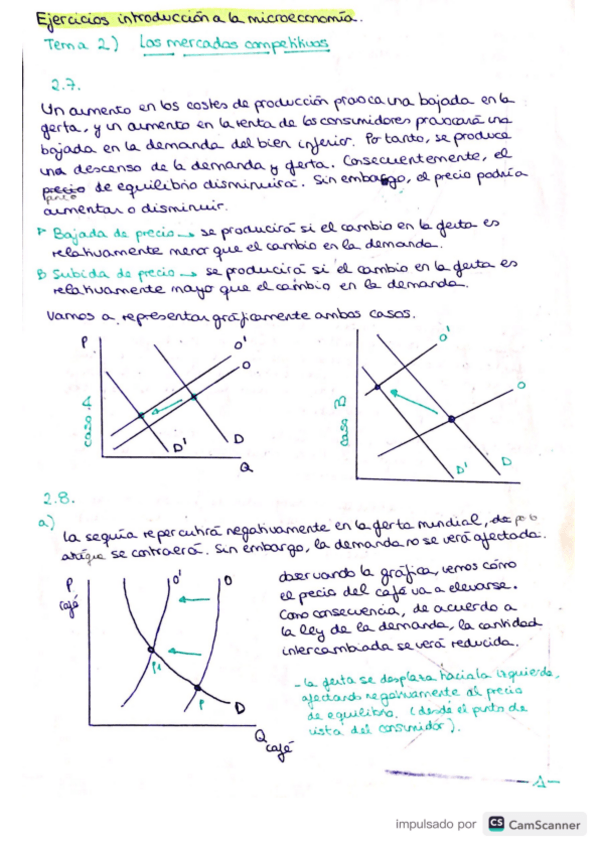 Ejercicios introducción a la microeconomía.
Tema 2) Los mercados competitivos
2.7.
Un aumento en los costes de producción provoca una bajada en la
oferta, y un aumento en la renta de los consumidores provocará una
bajada en la demanda del bien inferior. Por tanto, se produce
una descenso de la demanda y oferta. Consecuentemente, el
precio de equilibrio disminuirá. Sin embargo, el precio podría
punto
aumentar o disminuir.
A Bajada de precio → se producirá si el cambio en la oferta es
relativamente menor que el cambio en la demanda.
B Subida de precio → se producirá si el cambio en la oferta es
relativamente mayo que el cambio en la demanda.
Vamos a representar gráficamente ambos casos.
P
O'
O
caso A
D'
D
Q
O'
O
caso B
D'
D
2.8.
a)
La sequía repercutirá negativamente en la oferta mundial, de
que se contraerá. Sin embargo, la demanda no se verá afectada.
P
café
O'
O
P1
P
D
Q
café
observando la gráfica, vemos cómo
el precio del café va a elevarse.
Como consecuencia, de acuerdo a
la ley de la demanda, la cantidad
intercambiada se verá reducida.
- la oferta se desplaza hacia la izquierda,
afectando negativamente al precio
de equilibrio. (desde el punto de
vista del consumidor).
-1-
impulsado por CS CamScanner